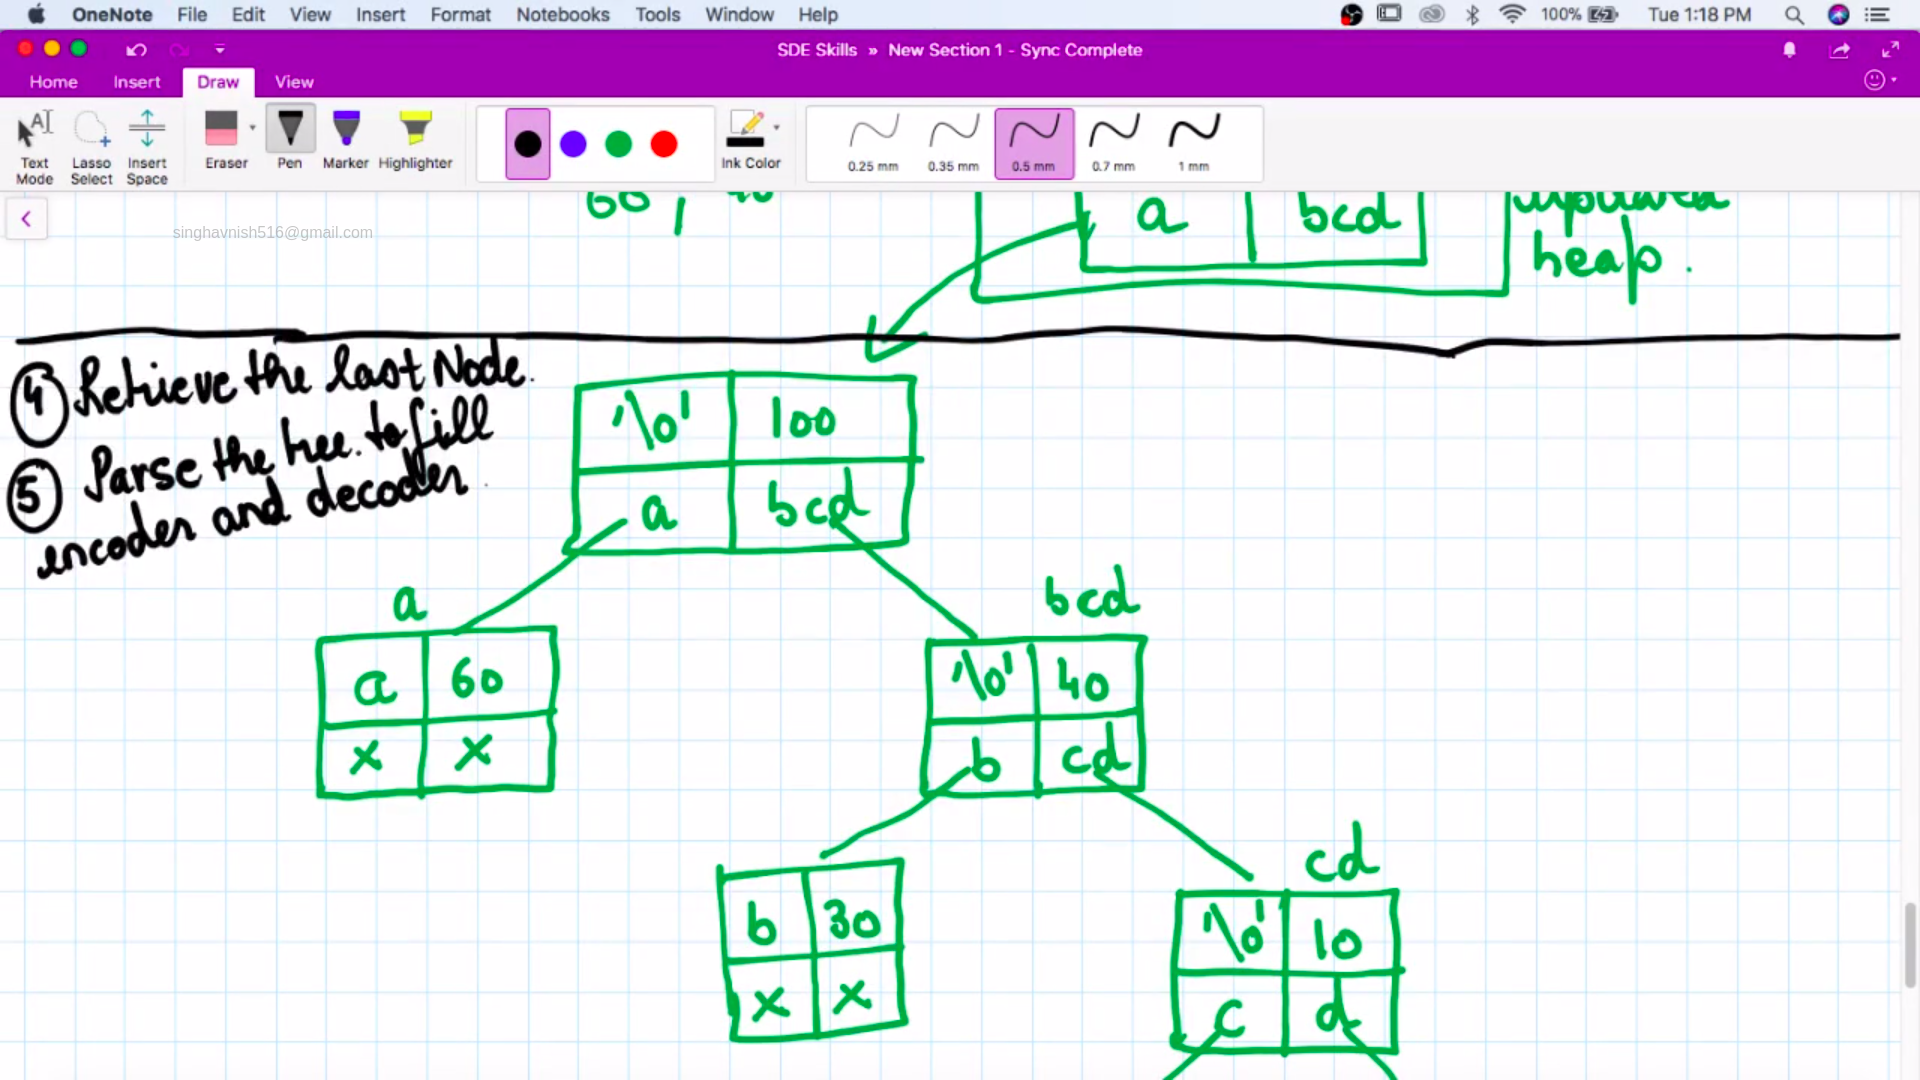 OneNote File Edit View Insert Format Notebooks Tools Window Help 100% Tue 1:18 PM
SDE Skills » New Section 1 - Sync Complete
Home Insert Draw View
Text Mode
Lasso Select
Insert Space
Eraser
Pen
Marker
Highlighter
Ink Color
0.25 mm 0.35 mm 0.5 mm 0.7 mm 1 mm
singhavnish516@gmail.com
60, 40
a bcd
updated
heap.
④ Retrieve the last Node.
⑤ Parse the tree. to fill
encoder and decoder.
'\0' 100
a bcd
a
a 60
x x
bcd
'\0' 40
b cd
b 30
x x
cd
'\0' 10
c d